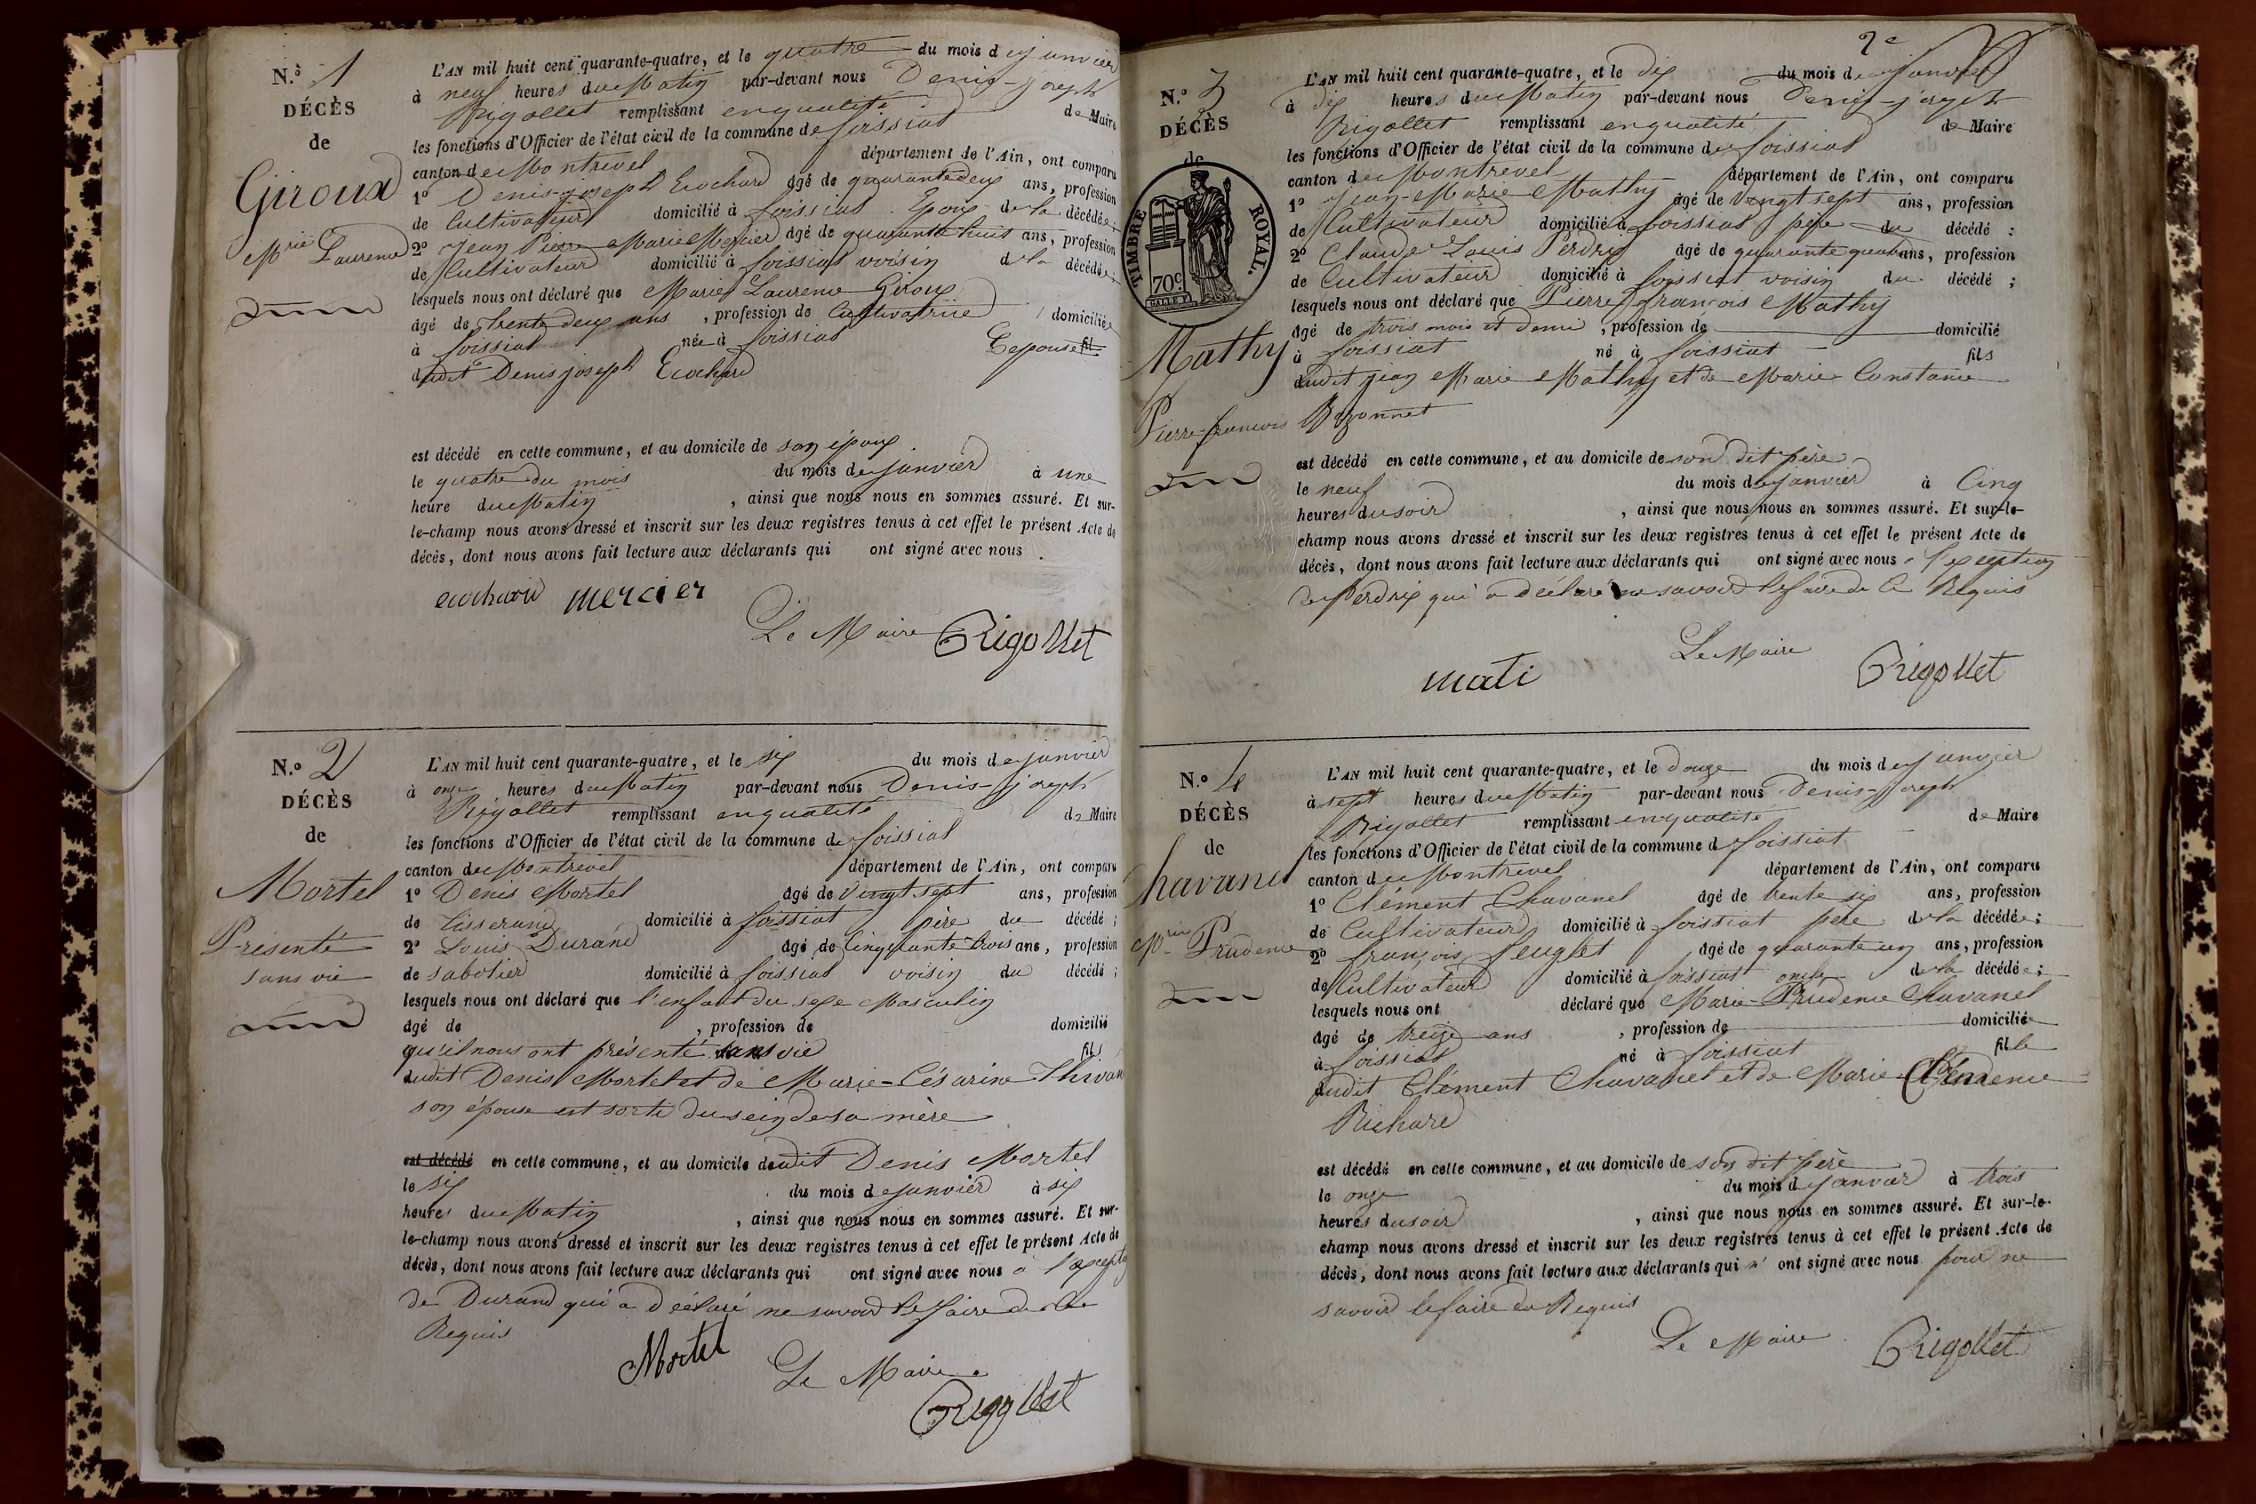 N.º 1
DÉCÈS
de
Giroux
Mrie Laurence
L'AN mil huit cent quarante-quatre, et le quatre du mois de janvier
à neuf heures du Matin par-devant nous Denis-joseph
Rigollet remplissant en qualité de Maire
les fonctions d'Officier de l'état civil de la commune de foissiat
canton de Montrevel département de l'Ain, ont comparu
1º Denis-joseph Ecochard âgé de quarante deux ans, profession
de Cultivateur domicilié à foissiat Epoux de la décédée ;
2º Jean Pierre Marie Mercier âgé de quarante huit ans, profession
de Cultivateur domicilié à foissiat voisin de la décédée ;
lesquels nous ont déclaré que Marie Laurence Giroux
âgé de trente deux ans , profession de Cultivatrice domiciliée
à foissiat née à foissiat Epouse fil
dudit Denis joseph Ecochard
est décédé en cette commune, et au domicile de son époux
le quatre du mois du mois de janvier à une
heure du Matin , ainsi que nous nous en sommes assuré. Et sur-
le-champ nous avons dressé et inscrit sur les deux registres tenus à cet effet le présent Acte de
décès, dont nous avons fait lecture aux déclarants qui ont signé avec nous .
ecochard mercier
Le Maire Rigollet
N.º 2
DÉCÈS
de
Mortel
Présenté
sans vie
L'AN mil huit cent quarante-quatre, et le six du mois de janvier
à onze heures du Matin par-devant nous Denis-joseph
Rigollet remplissant en qualité de Maire
les fonctions d'Officier de l'état civil de la commune de foissiat
canton de Montrevel département de l'Ain, ont comparu
1º Denis Mortel âgé de vingt sept ans, profession
de Tisserand domicilié à foissiat père du décédé ;
2º Louis Durand âgé de Cinquante trois ans, profession
de sabotier domicilié à foissiat voisin du décédé ;
lesquels nous ont déclaré que l'enfant du sexe Masculin
âgé de , profession de domicilié
qu'il nous ont présenté sans vie fils
dudit Denis Mortel et de Marie-Césarine
son épouse est sorti du sein de sa mère
est décédé en cette commune, et au domicile dudit Denis Mortel
le six du mois de janvier à six
heures du Matin , ainsi que nous nous en sommes assuré. Et sur-
le-champ nous avons dressé et inscrit sur les deux registres tenus à cet effet le présent Acte de
décès, dont nous avons fait lecture aux déclarants qui ont signé avec nous à l'exception
de Durand qui a déclaré ne savoir le faire de ce
Requis
Mortel Le Maire
Rigollet
2e
N.º 3
DÉCÈS
de
TIMBRE ROYAL.
70c
Mathy
Pierre-francois
L'AN mil huit cent quarante-quatre, et le dix du mois de janvier
à dix heures du Matin par-devant nous Denis-joseph
Rigollet remplissant en qualité de Maire
les fonctions d'Officier de l'état civil de la commune de foissiat
canton de Montrevel département de l'Ain, ont comparu
1º Jean-Marie Mathy âgé de vingt sept ans, profession
de Cultivateur domicilié à foissiat père du décédé ;
2º Claude Louis Perdrix âgé de quarante quatre ans, profession
de Cultivateur domicilié à foissiat voisin du décédé ;
lesquels nous ont déclaré que Pierre françois Mathy
âgé de trois mois et demi , profession de domicilié
à foissiat né à foissiat fils
dudit jean Marie Mathy et de Marie Constance
est décédé en cette commune, et au domicile de son dit père
le neuf du mois de janvier à Cinq
heures du soir , ainsi que nous nous en sommes assuré. Et sur-le-
champ nous avons dressé et inscrit sur les deux registres tenus à cet effet le présent Acte de
décès, dont nous avons fait lecture aux déclarants qui ont signé avec nous à l'exception
de Perdrix qui a déclaré ne savoir le faire de ce Requis
Le Maire
mati Rigollet
N.º 4
DÉCÈS
de
Chavanel
Mrie Prudence
L'AN mil huit cent quarante-quatre, et le douze du mois de janvier
à sept heures du Matin par-devant nous Denis-joseph
Rigollet remplissant en qualité de Maire
les fonctions d'Officier de l'état civil de la commune d foissiat
canton de Montrevel département de l'Ain, ont comparu
1º Clément Chavanel âgé de trente six ans, profession
de Cultivateur domicilié à foissiat père de la décédée ;
2º françois feuglet âgé de quarante un ans, profession
de Cultivateur domicilié à foissiat oncle de la décédée ;
lesquels nous ont déclaré que Marie-Prudence Chavanel
âgé de treize ans , profession de domiciliée
à foissiat né à foissiat fille
dudit Clément Chavanel et de Marie
Richard
est décédé en cette commune, et au domicile de son dit père
le onze du mois de janvier à trois
heures du soir , ainsi que nous nous en sommes assuré. Et sur-le-
champ nous avons dressé et inscrit sur les deux registres tenus à cet effet le présent Acte de
décès, dont nous avons fait lecture aux déclarants qui n' ont signé avec nous pour ne
savoir le faire de Requis
Le Maire Rigollet